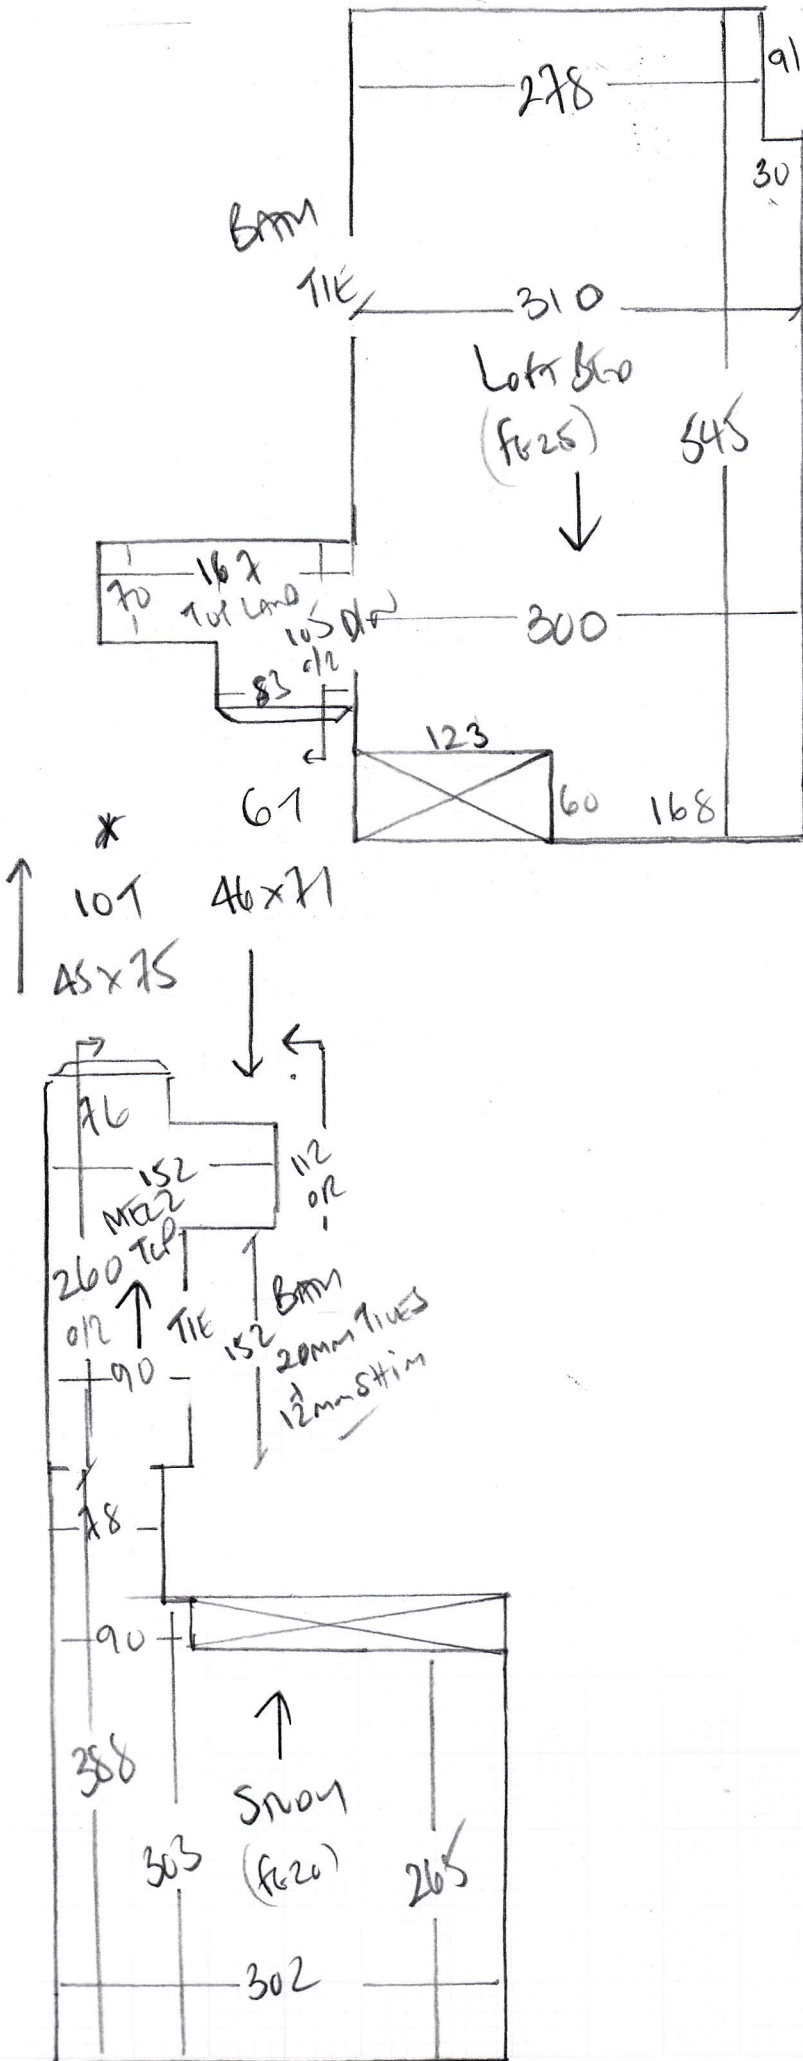 278
91
30
BATH
TIE
310
LOFT BED
(FE25)
545
167
70
TOP LAND
105 D/W
O/R
300
83
123
60
168
6T
*
10T
46x71
45x75
76
152
MEZZ
TOP
112
O/R
260
O/R
TIE
BATH
152
20mm TILES
12mm SHIM
90
78
90
388
STUDY
303
(FE20)
265
302